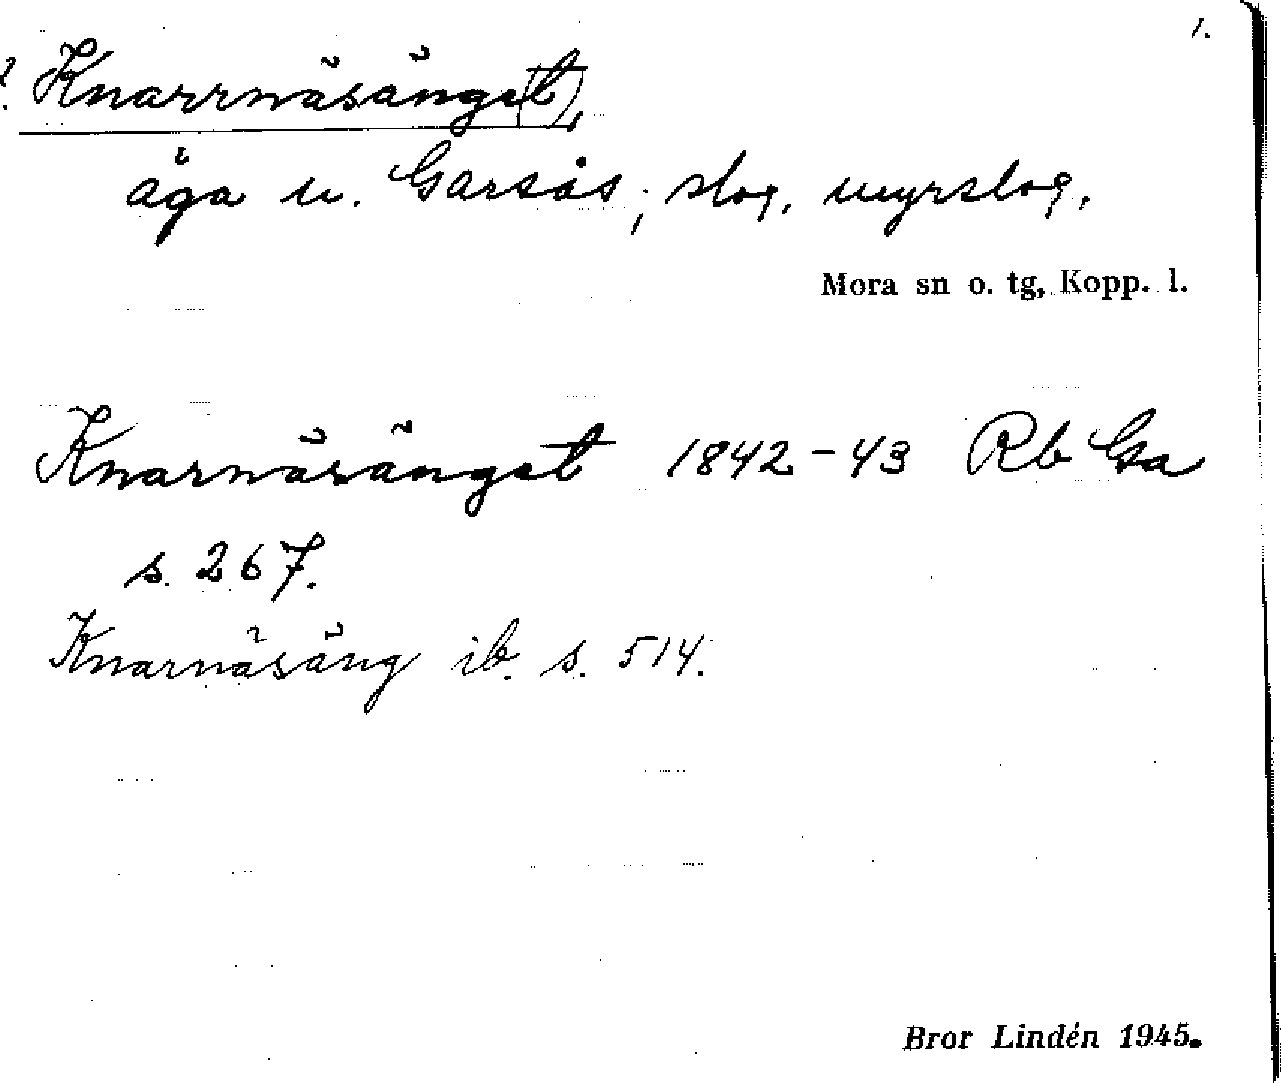 1.
? Knarrnäsänge(t),
äga u. Garsås; slog, myrslog,
Mora sn o. tg, Kopp. l.
Knarnäsänget 1842-43 Rb Ga
s. 267.
Knarnäsäng ib. s. 514.
Bror Lindén 1945.